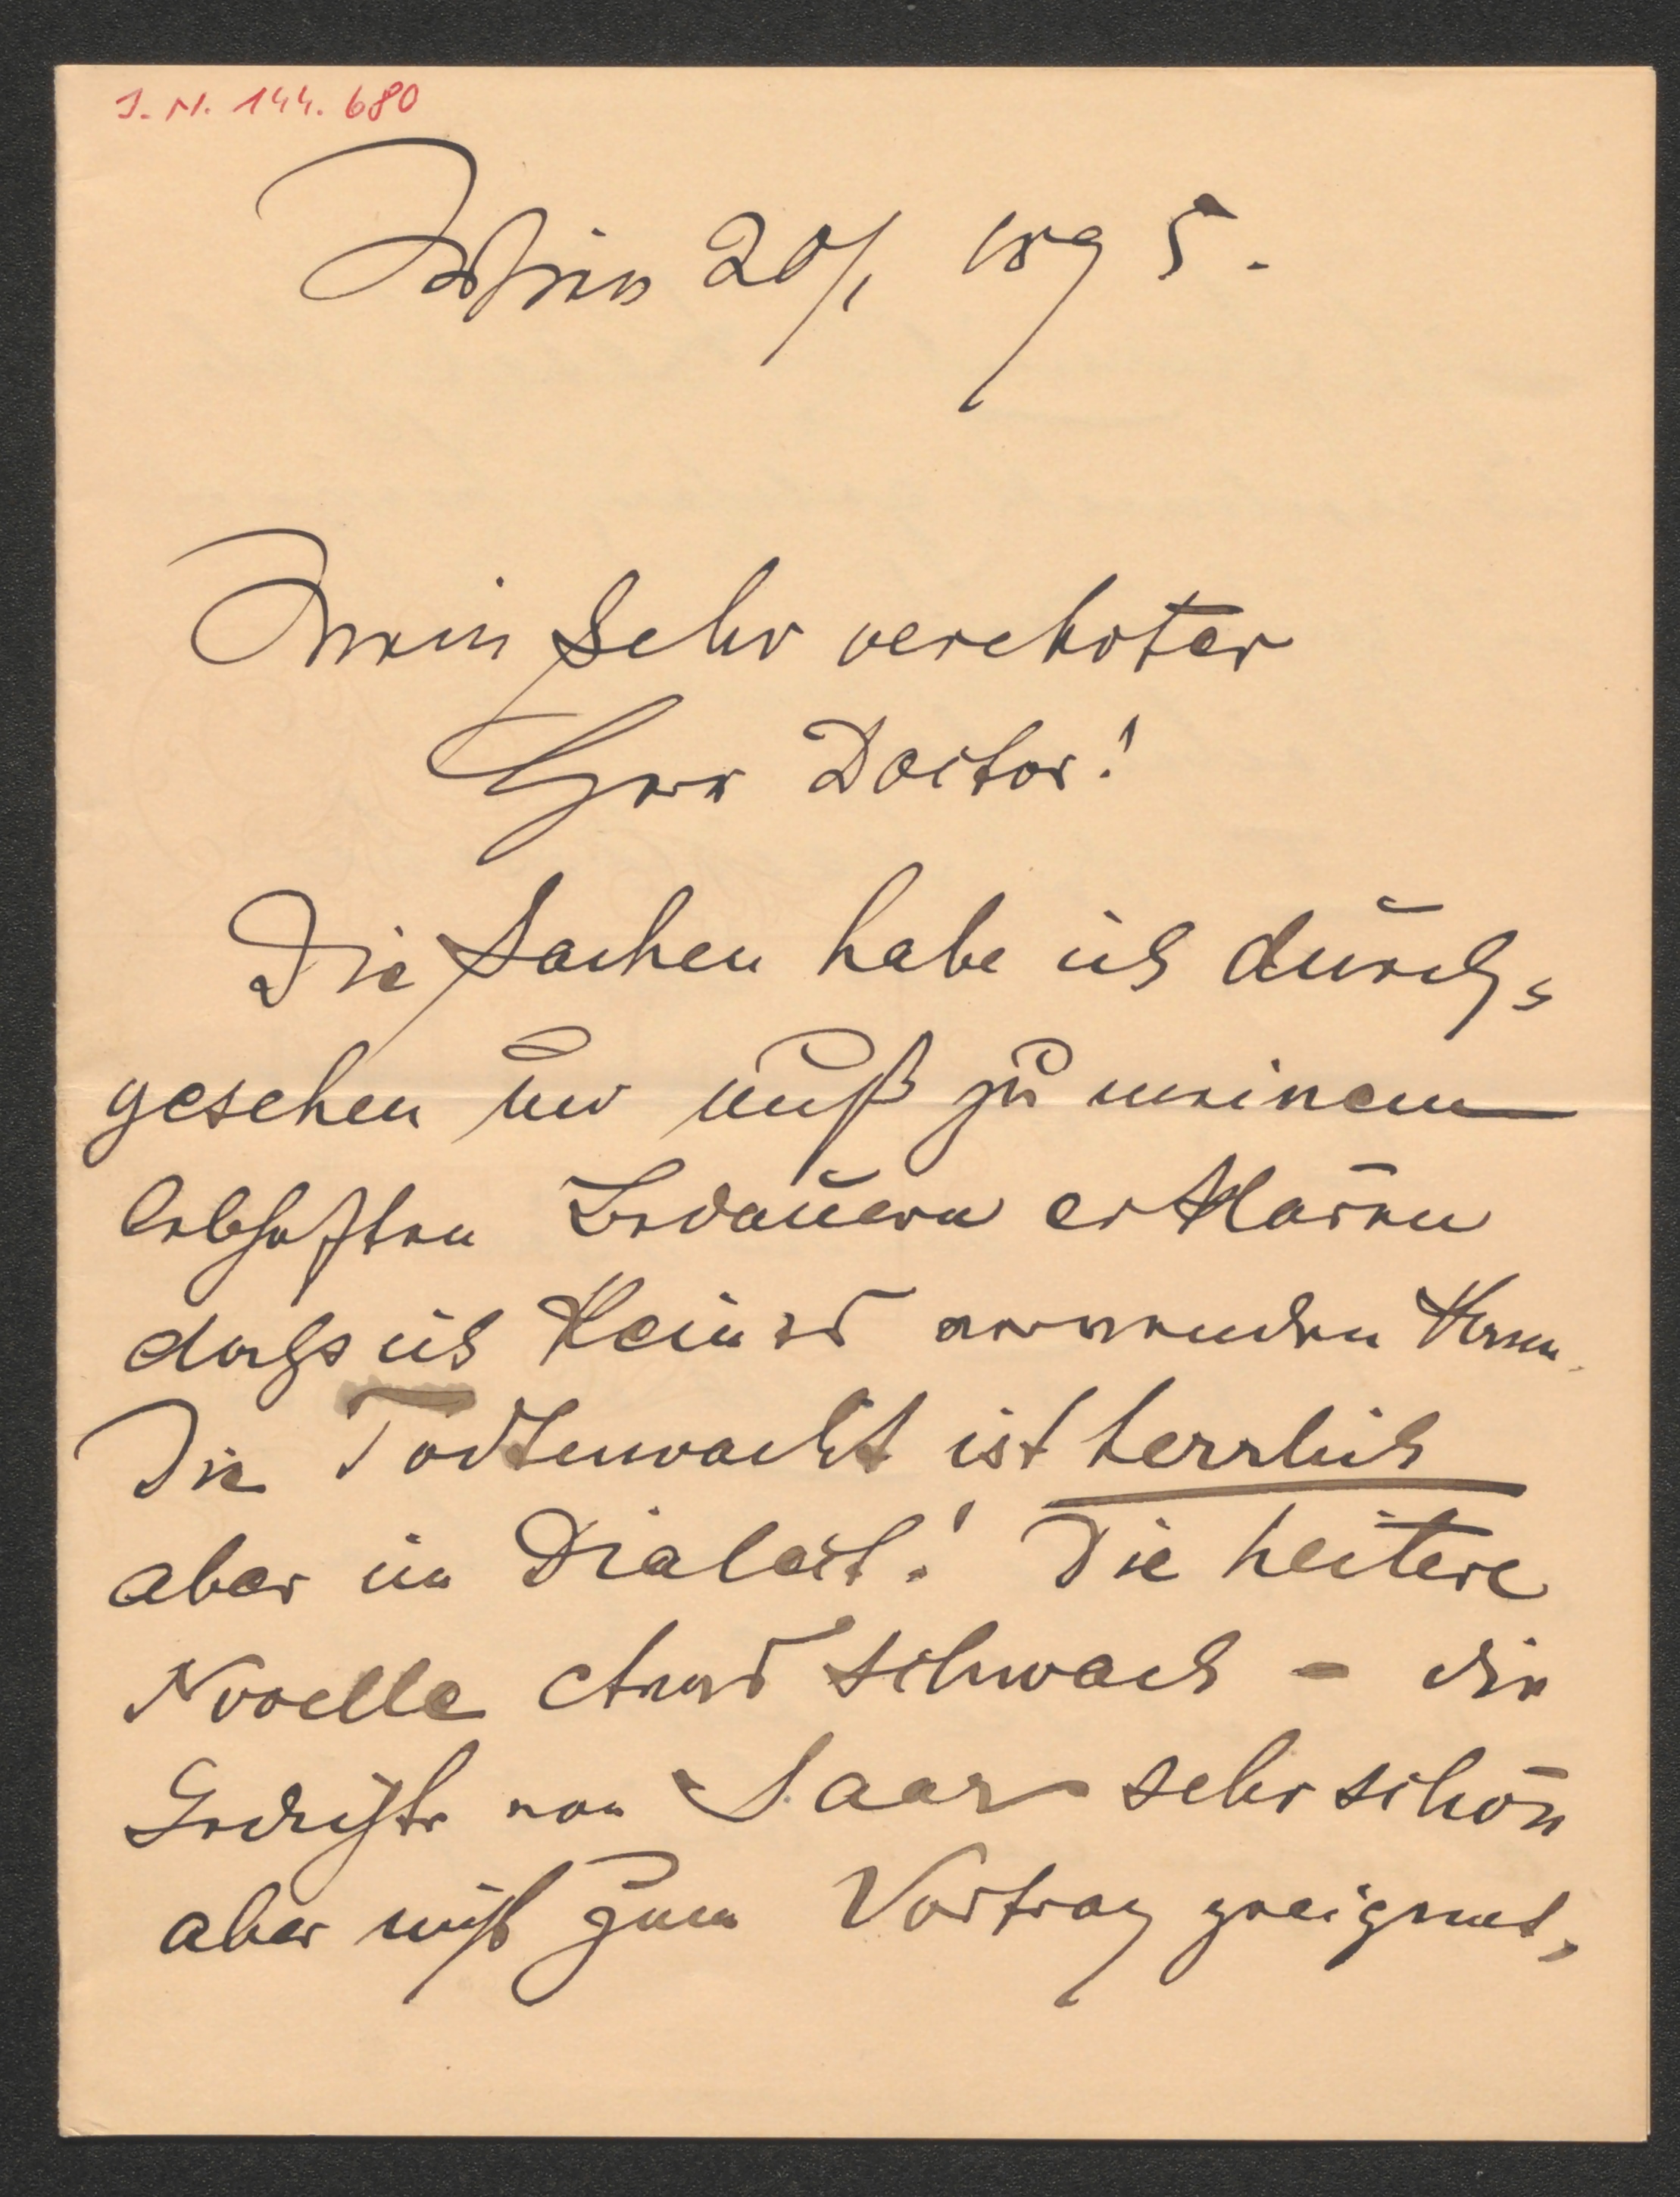 I. N. 144.680
Wien 20/1 1895.
Mein sehr verehrter
Herr Doctor!
Die Sachen habe ich durch=
gesehen und muß zu meinem
lebhaften Bedauern erklären
dass ich keines verwenden kann.
Die Todtenwacht ist herrlich
aber im Dialect! Die heitere
Novelle etwas schwach - die
Gedichte von Saar sehr schön
aber nicht zum Vortrag geeignet,